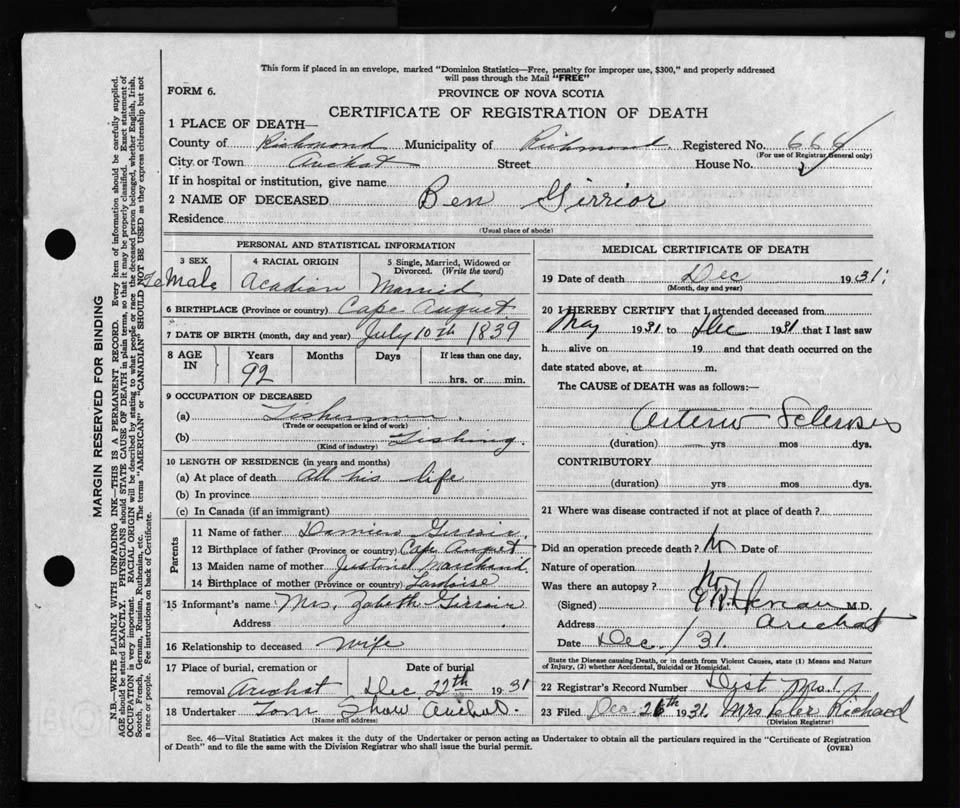 This form if placed in an envelope, marked "Dominion Statistics—Free, penalty for improper use, $300," and properly addressed
will pass through the Mail "FREE"
FORM 6.
PROVINCE OF NOVA SCOTIA
CERTIFICATE OF REGISTRATION OF DEATH
1 PLACE OF DEATH—
County of Richmond Municipality of Richmond Registered No. 664
(For use of Registrar General only)
City or Town Arichat Street House No.
If in hospital or institution, give name
2 NAME OF DECEASED Ben Girrior
Residence
(Usual place of abode)
PERSONAL AND STATISTICAL INFORMATION
3 SEX
Male
4 RACIAL ORIGIN
Acadian
5 Single, Married, Widowed or Divorced. (Write the word)
Married
6 BIRTHPLACE (Province or country) Cape August
7 DATE OF BIRTH (month, day and year) July 10th 1839
8 AGE IN
Years Months Days If less than one day,
92 hrs. or min.
9 OCCUPATION OF DECEASED
(a) Fisherman.
(Trade or occupation or kind of work)
(b) Fishing.
(Kind of industry)
10 LENGTH OF RESIDENCE (in years and months)
(a) At place of death all his life
(b) In province
(c) In Canada (if an immigrant)
Parents
11 Name of father Damien
12 Birthplace of father (Province or country) Cape August
13 Maiden name of mother Marchand
14 Birthplace of mother (Province or country) Lardoise
15 Informant's name Mrs. Zabeth Girroir
Address
16 Relationship to deceased wife
17 Place of burial, cremation or Date of burial
removal Arichat Dec 22th 1931
18 Undertaker Tom Shaw Arichat.
(Name and address)
MEDICAL CERTIFICATE OF DEATH
19 Date of death Dec 1931.
(Month, day and year)
20 I HEREBY CERTIFY that I attended deceased from
May 1931 to Dec 1931 that I last saw
h alive on 19 and that death occurred on the
date stated above, at m.
The CAUSE of DEATH was as follows:—
Arterio-Sclerosis
(duration) yrs mos dys.
CONTRIBUTORY
(duration) yrs mos dys.
21 Where was disease contracted if not at place of death?
Did an operation precede death? No Date of
Nature of operation
Was there an autopsy? No
(Signed) M.D.
Address Arichat
Date Dec /31.
State the Disease causing Death, or in death from Violent Causes, state (1) Means and Nature
of Injury, (2) whether Accidental, Suicidal or Homicidal.
22 Registrar's Record Number Dist No. 1
23 Filed Dec. 26th 1931. Mrs Peter Richard
(Division Registrar)
Sec. 46—Vital Statistics Act makes it the duty of the Undertaker or person acting as Undertaker to obtain all the particulars required in the "Certificate of Registration
of Death" and to file the same with the Division Registrar who shall issue the burial permit.
(OVER)
MARGIN RESERVED FOR BINDING
N.B.—WRITE PLAINLY WITH UNFADING INK—THIS IS A PERMANENT RECORD. Every item of information should be carefully supplied.
AGE should be stated EXACTLY. PHYSICIANS should STATE CAUSE OF DEATH in plain terms, so that it may be properly classified. Exact statement of
OCCUPATION is very important. RACIAL ORIGIN will be described by stating to what people or race the deceased person belonged, whether English, Irish,
Scotch, French, German, Russian, Ruthenian, etc. The terms "AMERICAN" or "CANADIAN" SHOULD NOT BE USED as they express citizenship but not
a race or people. See instructions on back of Certificate.